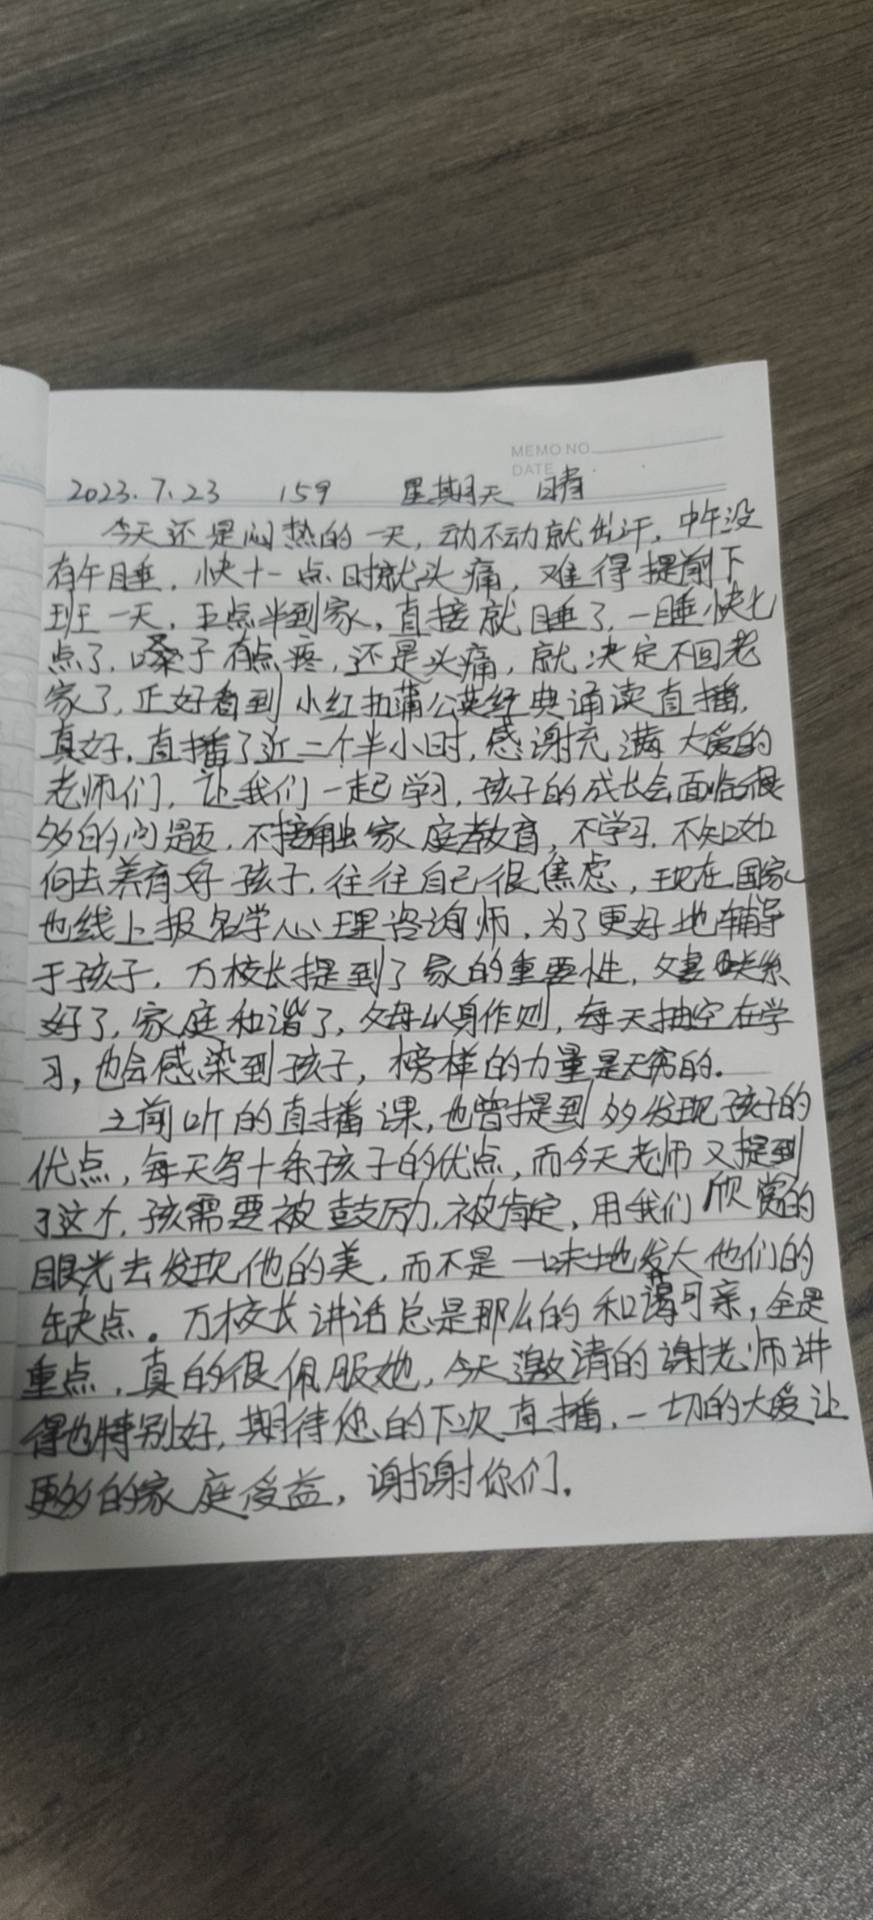 MEMO NO.
DATE
2023.7.23 159 星期天 晴
今天还是闷热的一天，动不动就出汗，中午没
有午睡，快十一点时就头痛，难得提前下
班一天，五点半到家，直接就睡了，一睡快七
点了，嗓子有点疼，还是头痛，就决定不回老
家了，正好看到小红拍蒲公英经典诵读直播，
真好，直播了近二个半小时，感谢充满大爱的
老师们，让我们一起学习，孩子的成长会面临很
多的问题，不接触家庭教育，不学习，不知如
何去养育好孩子，往往自己很焦虑，现在国家
也线上报名学心理咨询师，为了更好地辅导
于孩子，万校长提到了家的重要性，夫妻关系
好了，家庭和谐了，父母以身作则，每天抽空在学
习，也会感染到孩子，榜样的力量是无穷的。
之前听的直播课，也曾提到多发现孩子的
优点，每天写十条孩子的优点，而今天老师又提到
了这个，孩需要被鼓励，被肯定，用我们欣赏的
眼光去发现他的美，而不是一味地放大他们的
缺点。万校长讲话总是那么的和蔼可亲，全是
重点，真的很佩服她，今天邀请的谢老师讲
得也特别好，期待您的下次直播，一切的大爱让
更多的家庭受益，谢谢你们。